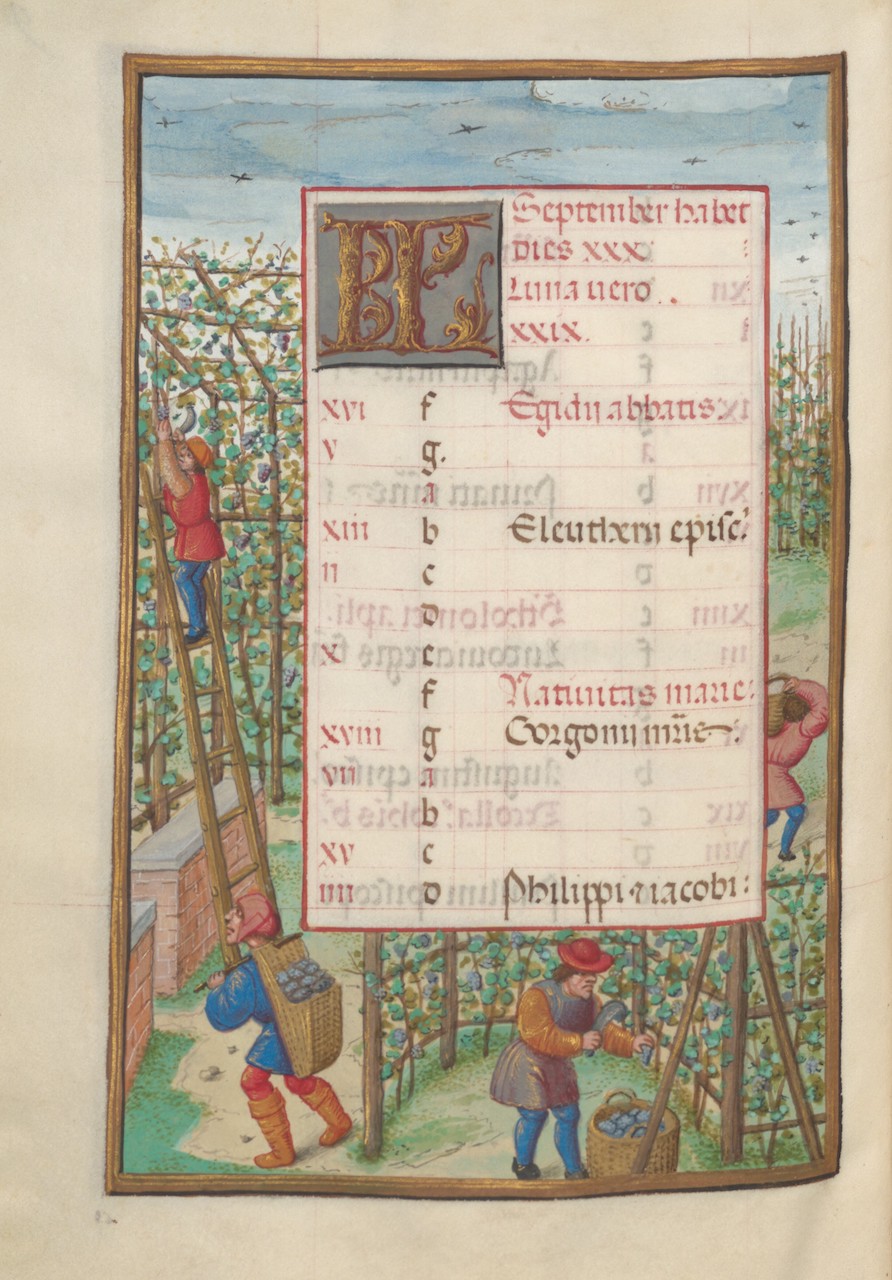 KL September habet
dies xxx
Luna uero .
xxix.
xvi f Egidii abbatis:
v g.
a
xiii b Eleutherii episc̓:
ii c
d
x e
f Natiuitas marie:
xviii g Gorgonii mr̄is:
vii a
b
xv c
iiii d Philippi ⁊ iacobi: